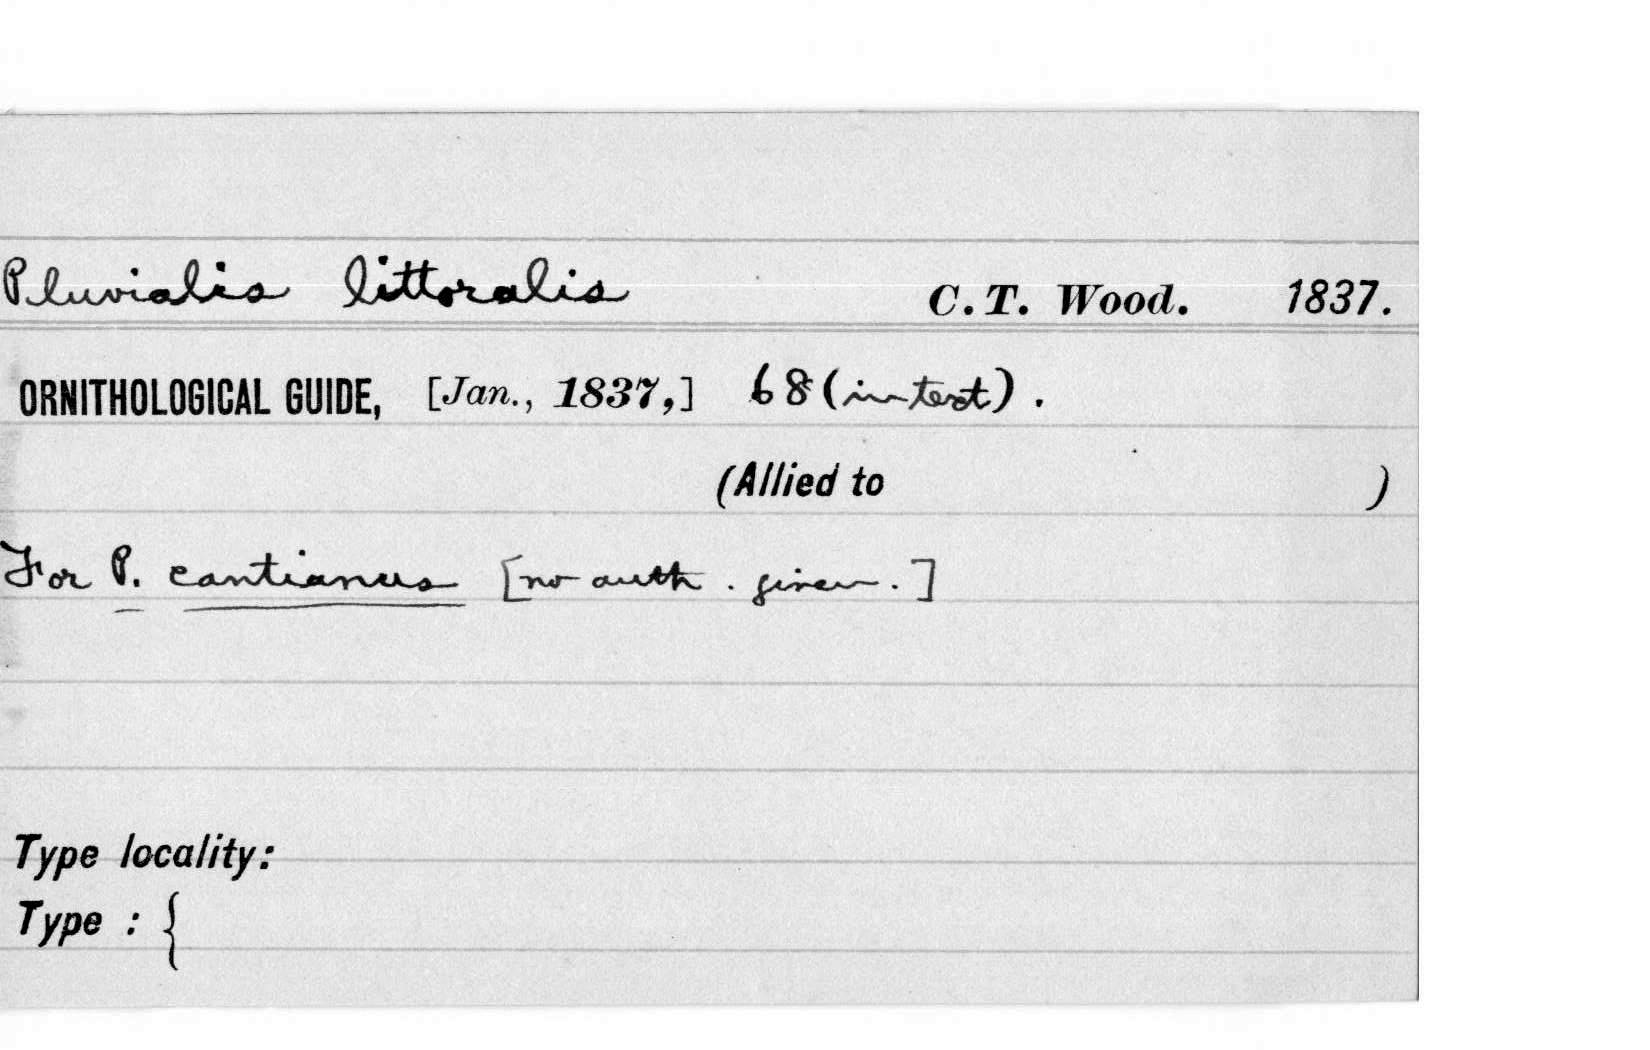 Pluvialis littoralis C. T. Wood. 1837.
ORNITHOLOGICAL GUIDE, [Jan., 1837,] 68 (in text).
(Allied to )
For P. cantianus [no auth. given.]
Type locality:
Type : {